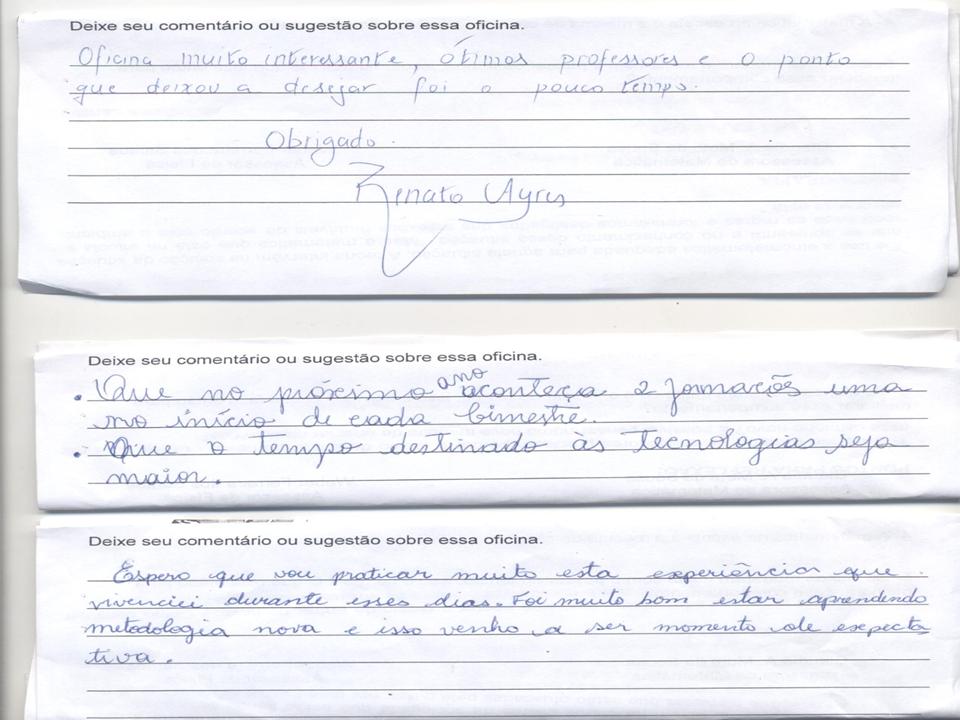 Deixe seu comentário ou sugestão sobre essa oficina.
Oficina muito interessante, ótimos professores e o ponto
que deixou a desejar foi o pouco tempo.
Obrigado.
Renato Ayres
Deixe seu comentário ou sugestão sobre essa oficina.
. Que no próximo ano aconteça 2 formações uma
no início de cada bimestre.
. Que o tempo destinado às tecnologias seja
maior.
Deixe seu comentário ou sugestão sobre essa oficina.
Espero que vou praticar muito esta experiência que
vivenciei durante esses dias. Foi muito bom estar aprendendo
metodologia nova e isso venho a ser momento de expecta
tiva.